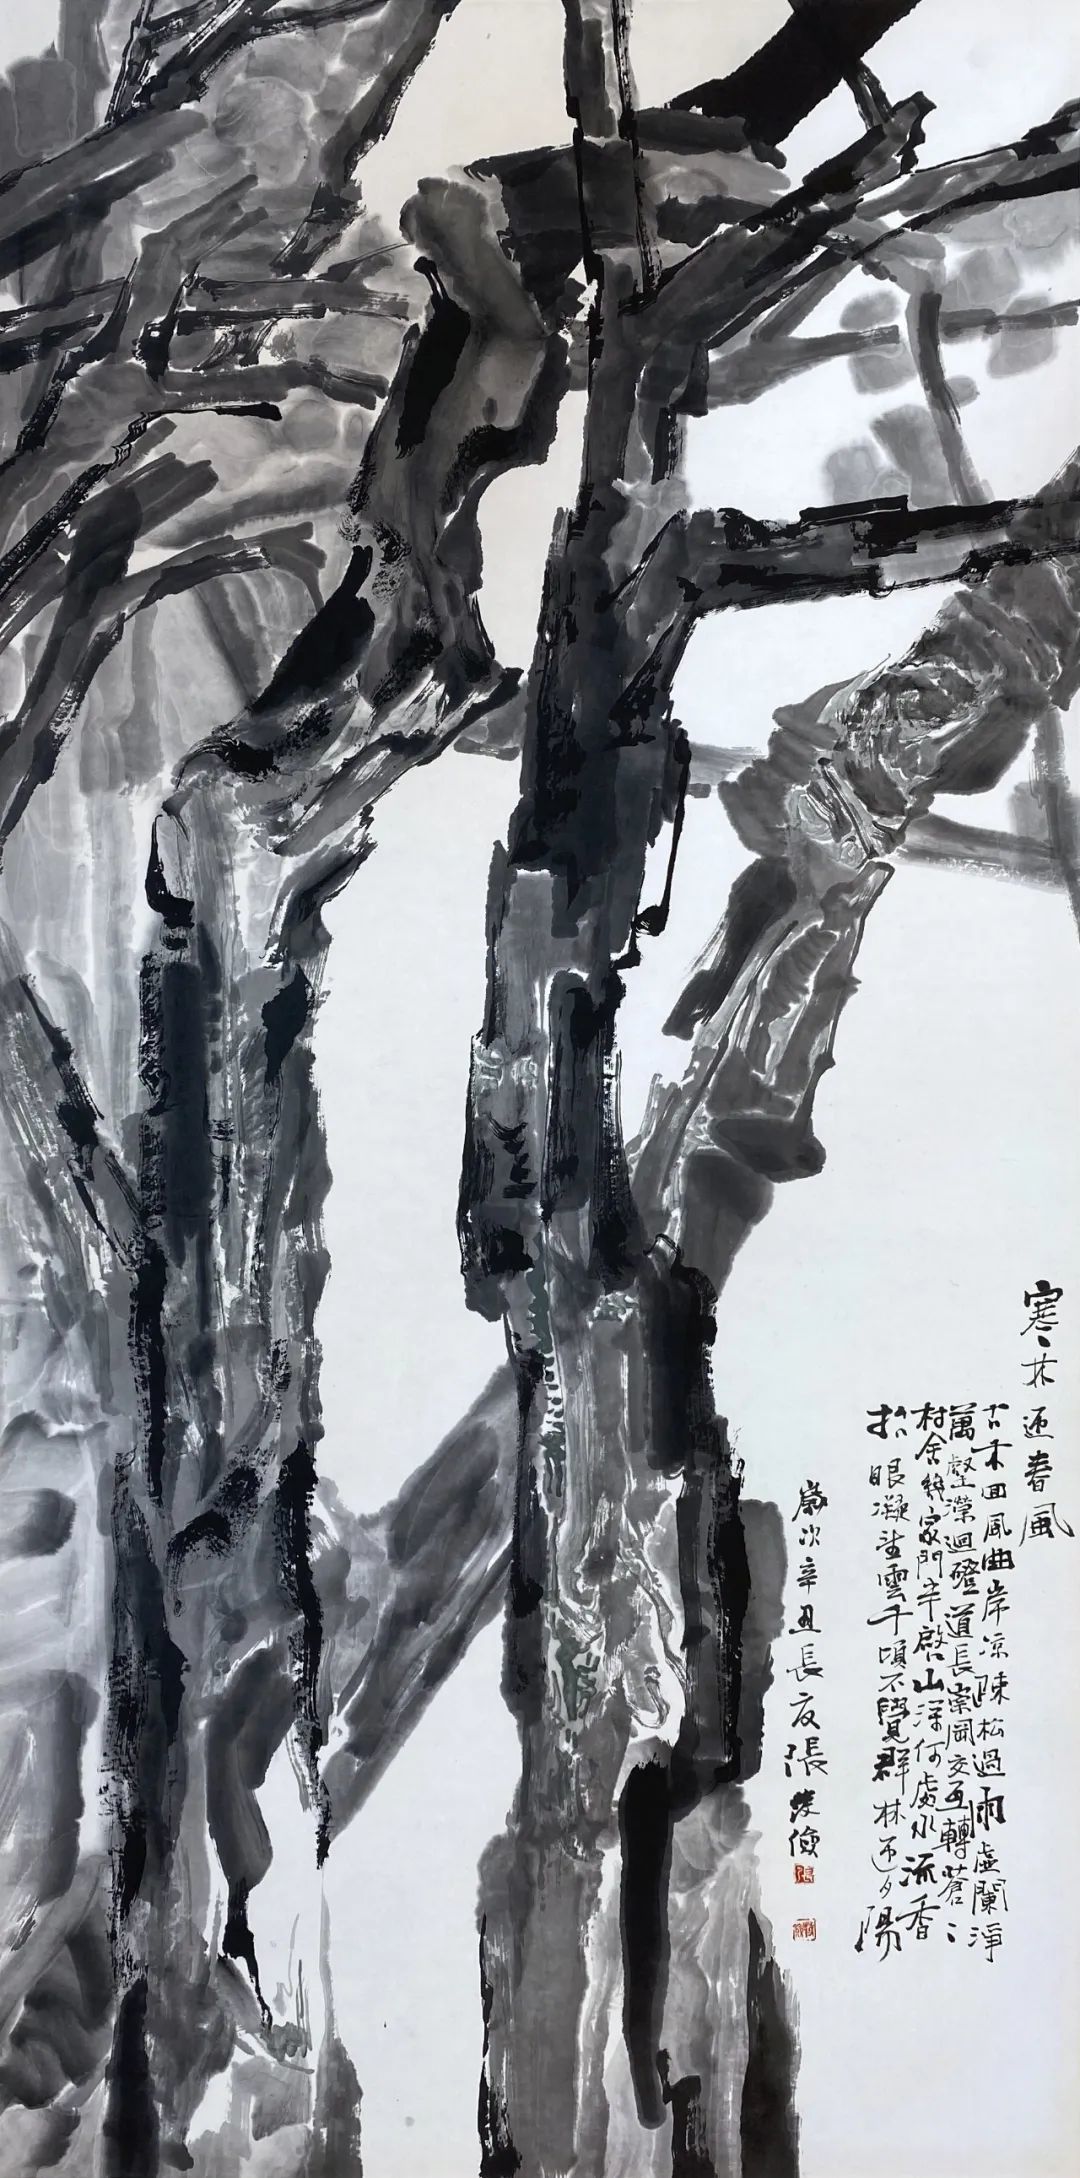 寒林迎春風
古木回風曲岸凉疎松過雨虛闌淨
萬壑瀠迴磴道長崇岡交互轉蒼〻
村舍幾家門半啟山深何處水流香
抬眼凝望雲千頃不覺群林迎夕陽
歲次辛丑長夏張儉
張